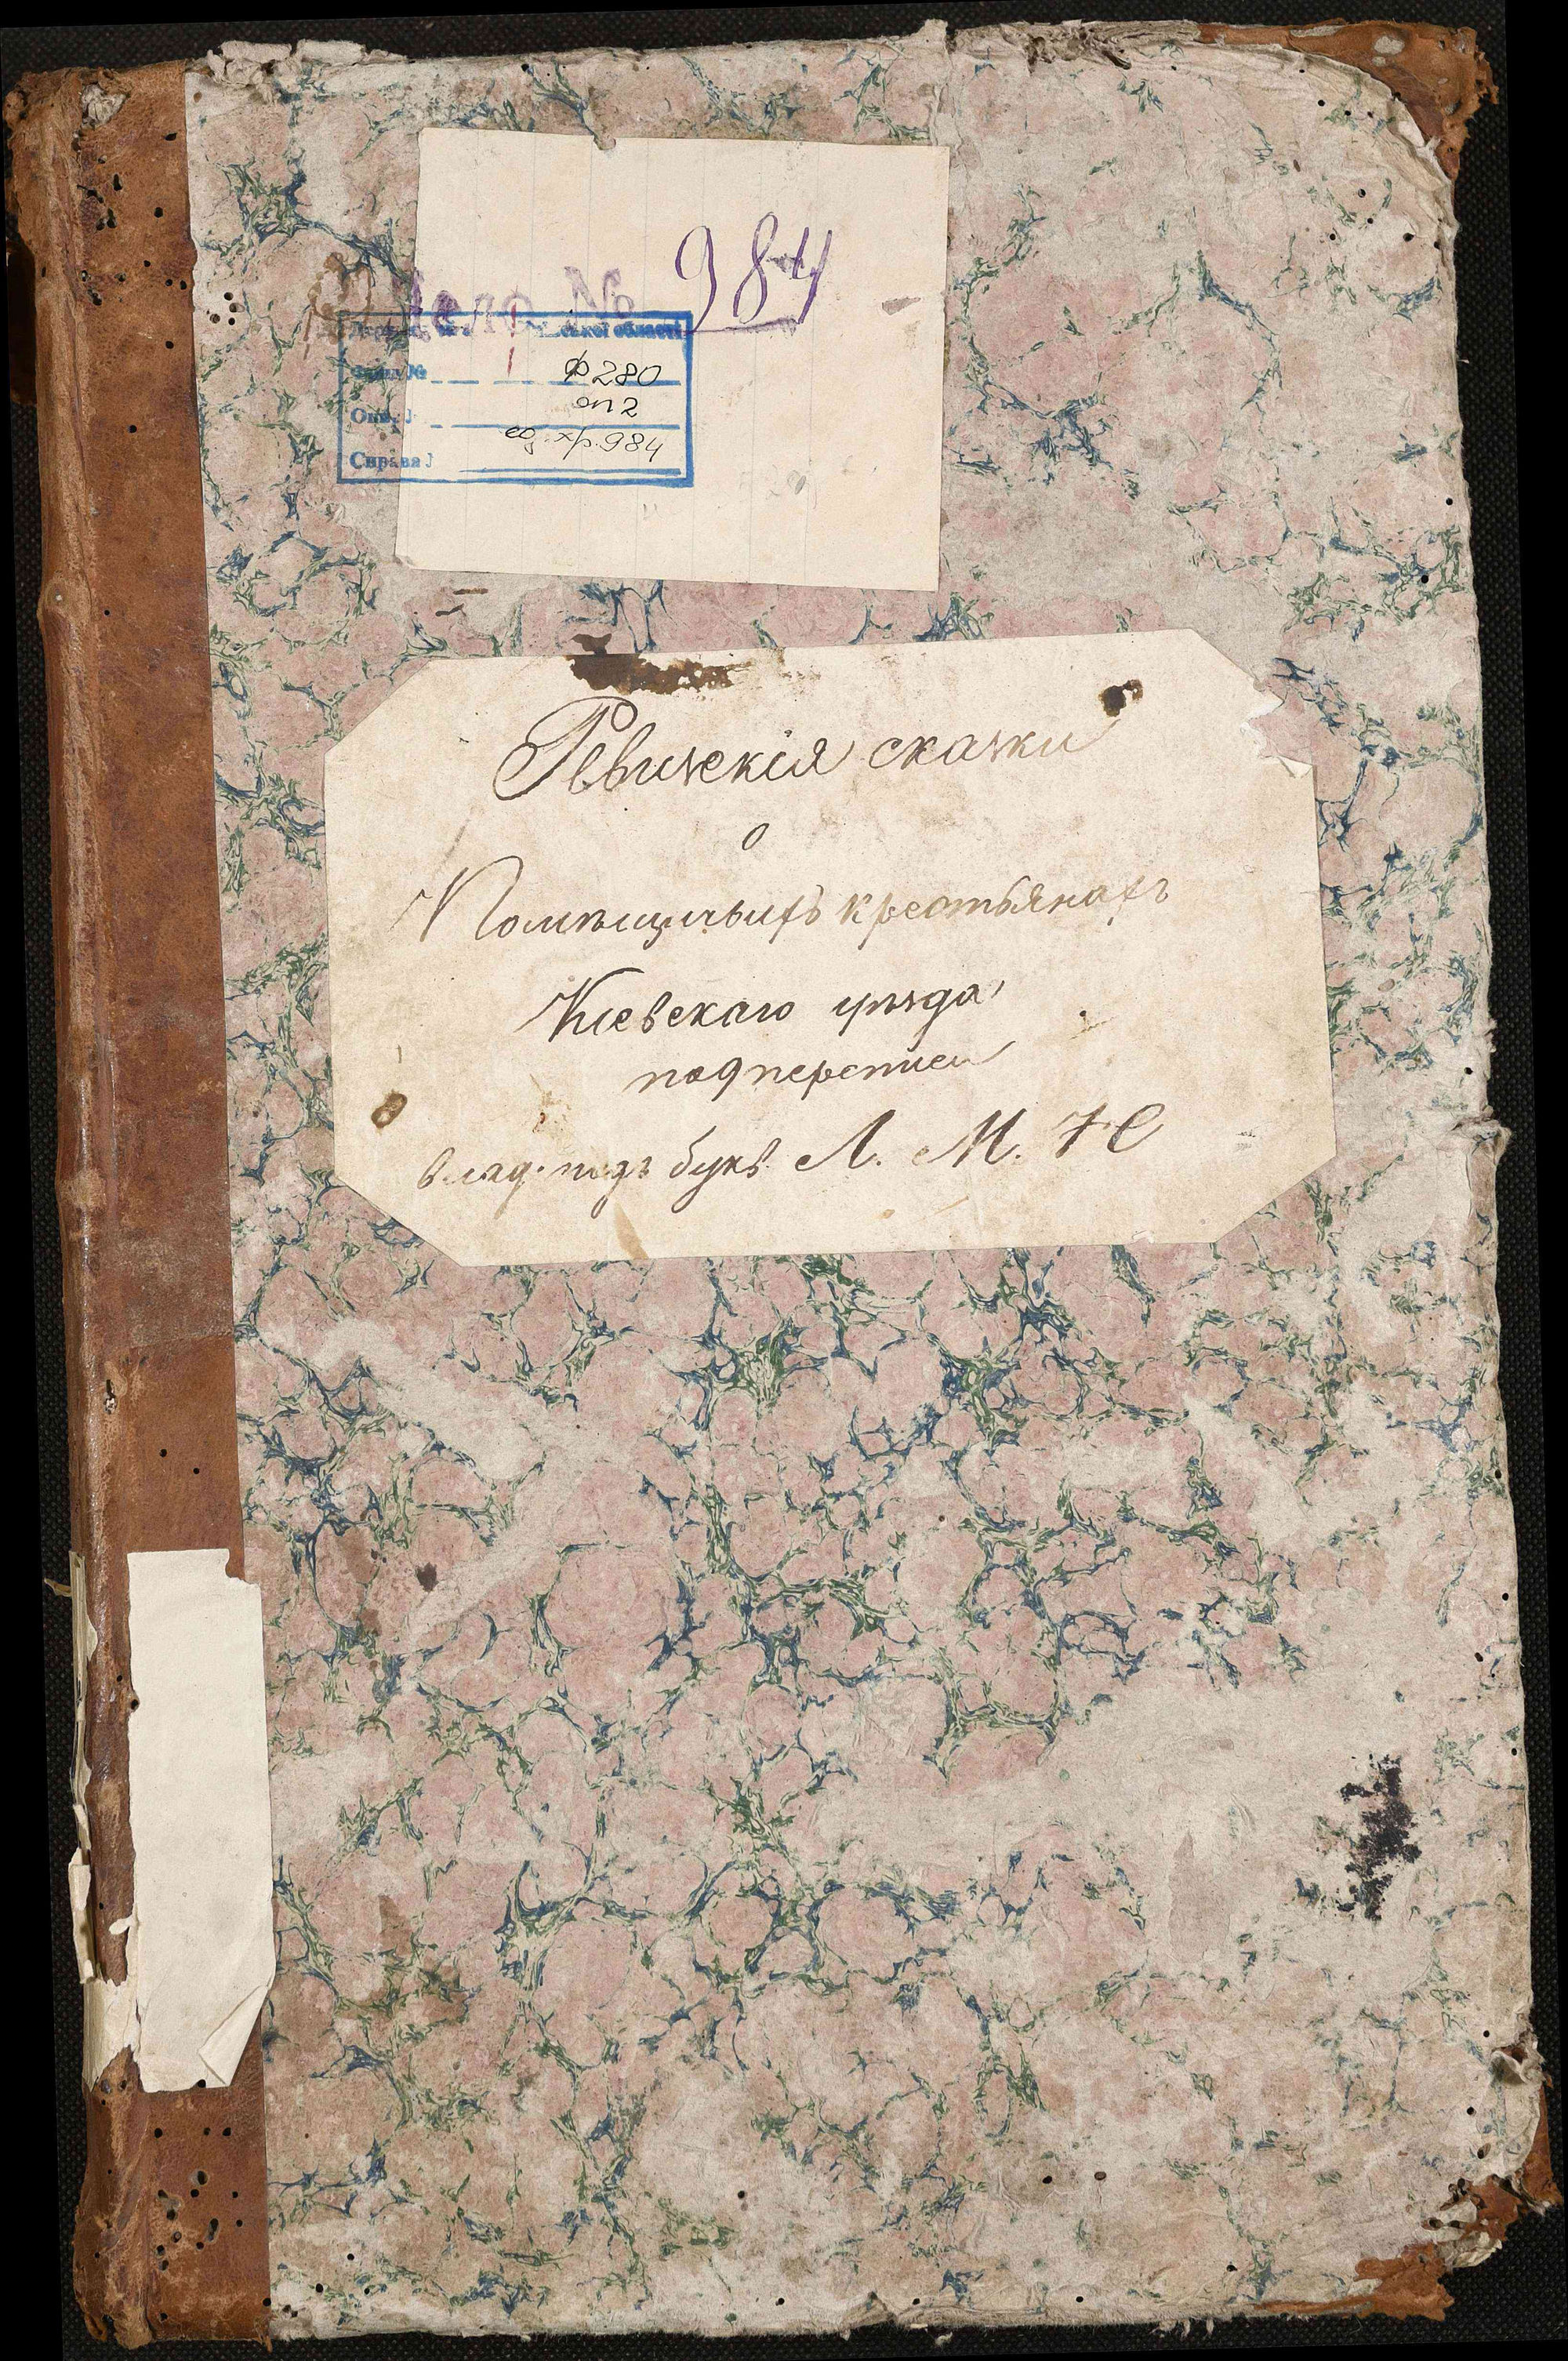 Дело № 984
ської області
Фонд № ф 280
Опис оп 2
Справа ед. хр. 984
Ревизскія сказки
о
Помѣщичьихъ крестьянахъ
Кіевскаго уѣзда
влад. подъ букв. Л. М. Н С